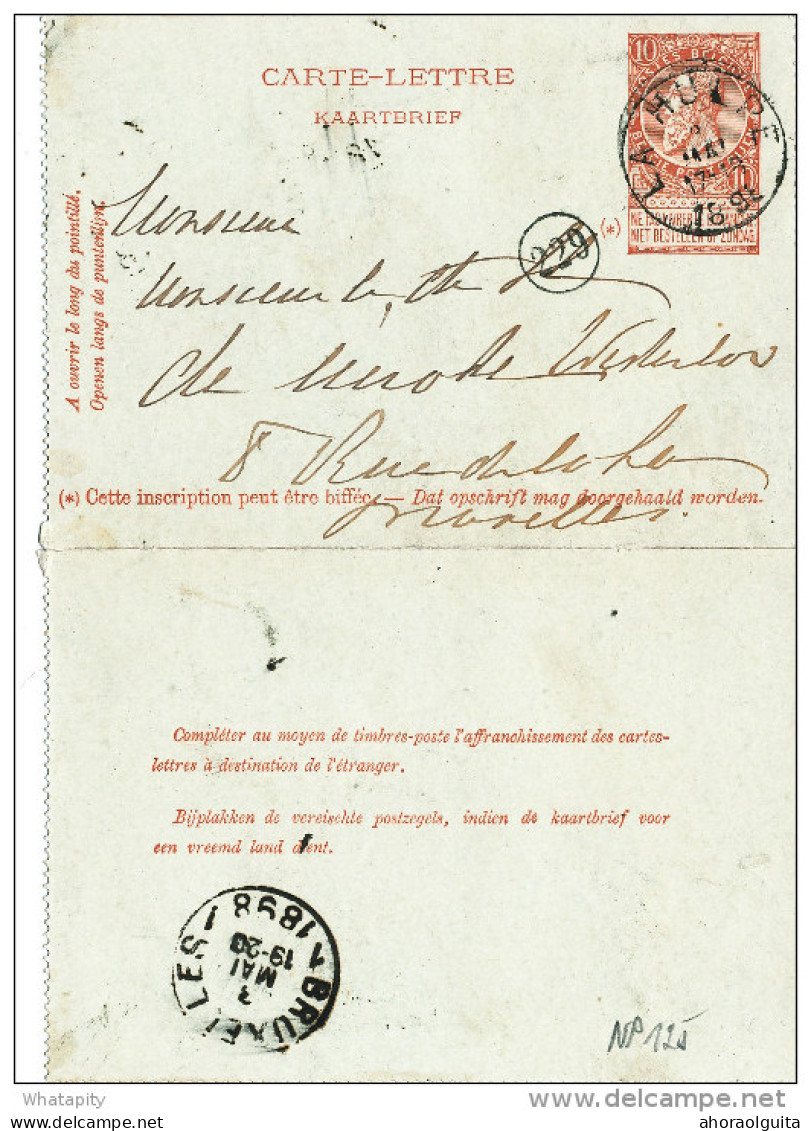 CARTE-LETTRE
KAARTBRIEF
10 10
LA HULPE
MAI
1898
(*)
NIET BESTELLEN OP ZONDAG
229
A ouvrir le long du pointillé.
Openen langs de puntenlijn.
Monsieur
Monsieur le Cte
de Merode Westerloo
8 Rue de la Loi
Bruxelles.
(*) Cette inscription peut être biffée. — Dat opschrift mag doorgehaald worden.
Compléter au moyen de timbres-poste l'affranchissement des cartes-
lettres à destination de l'étranger.
Bijplakken de vereischte postzegels, indien de kaartbrief voor
een vreemd land dient.
1 BRUXELLES 1
3
MAI
19-20
1898
NP 125
Whatapity
www.delcampe.net
ahoraolguita